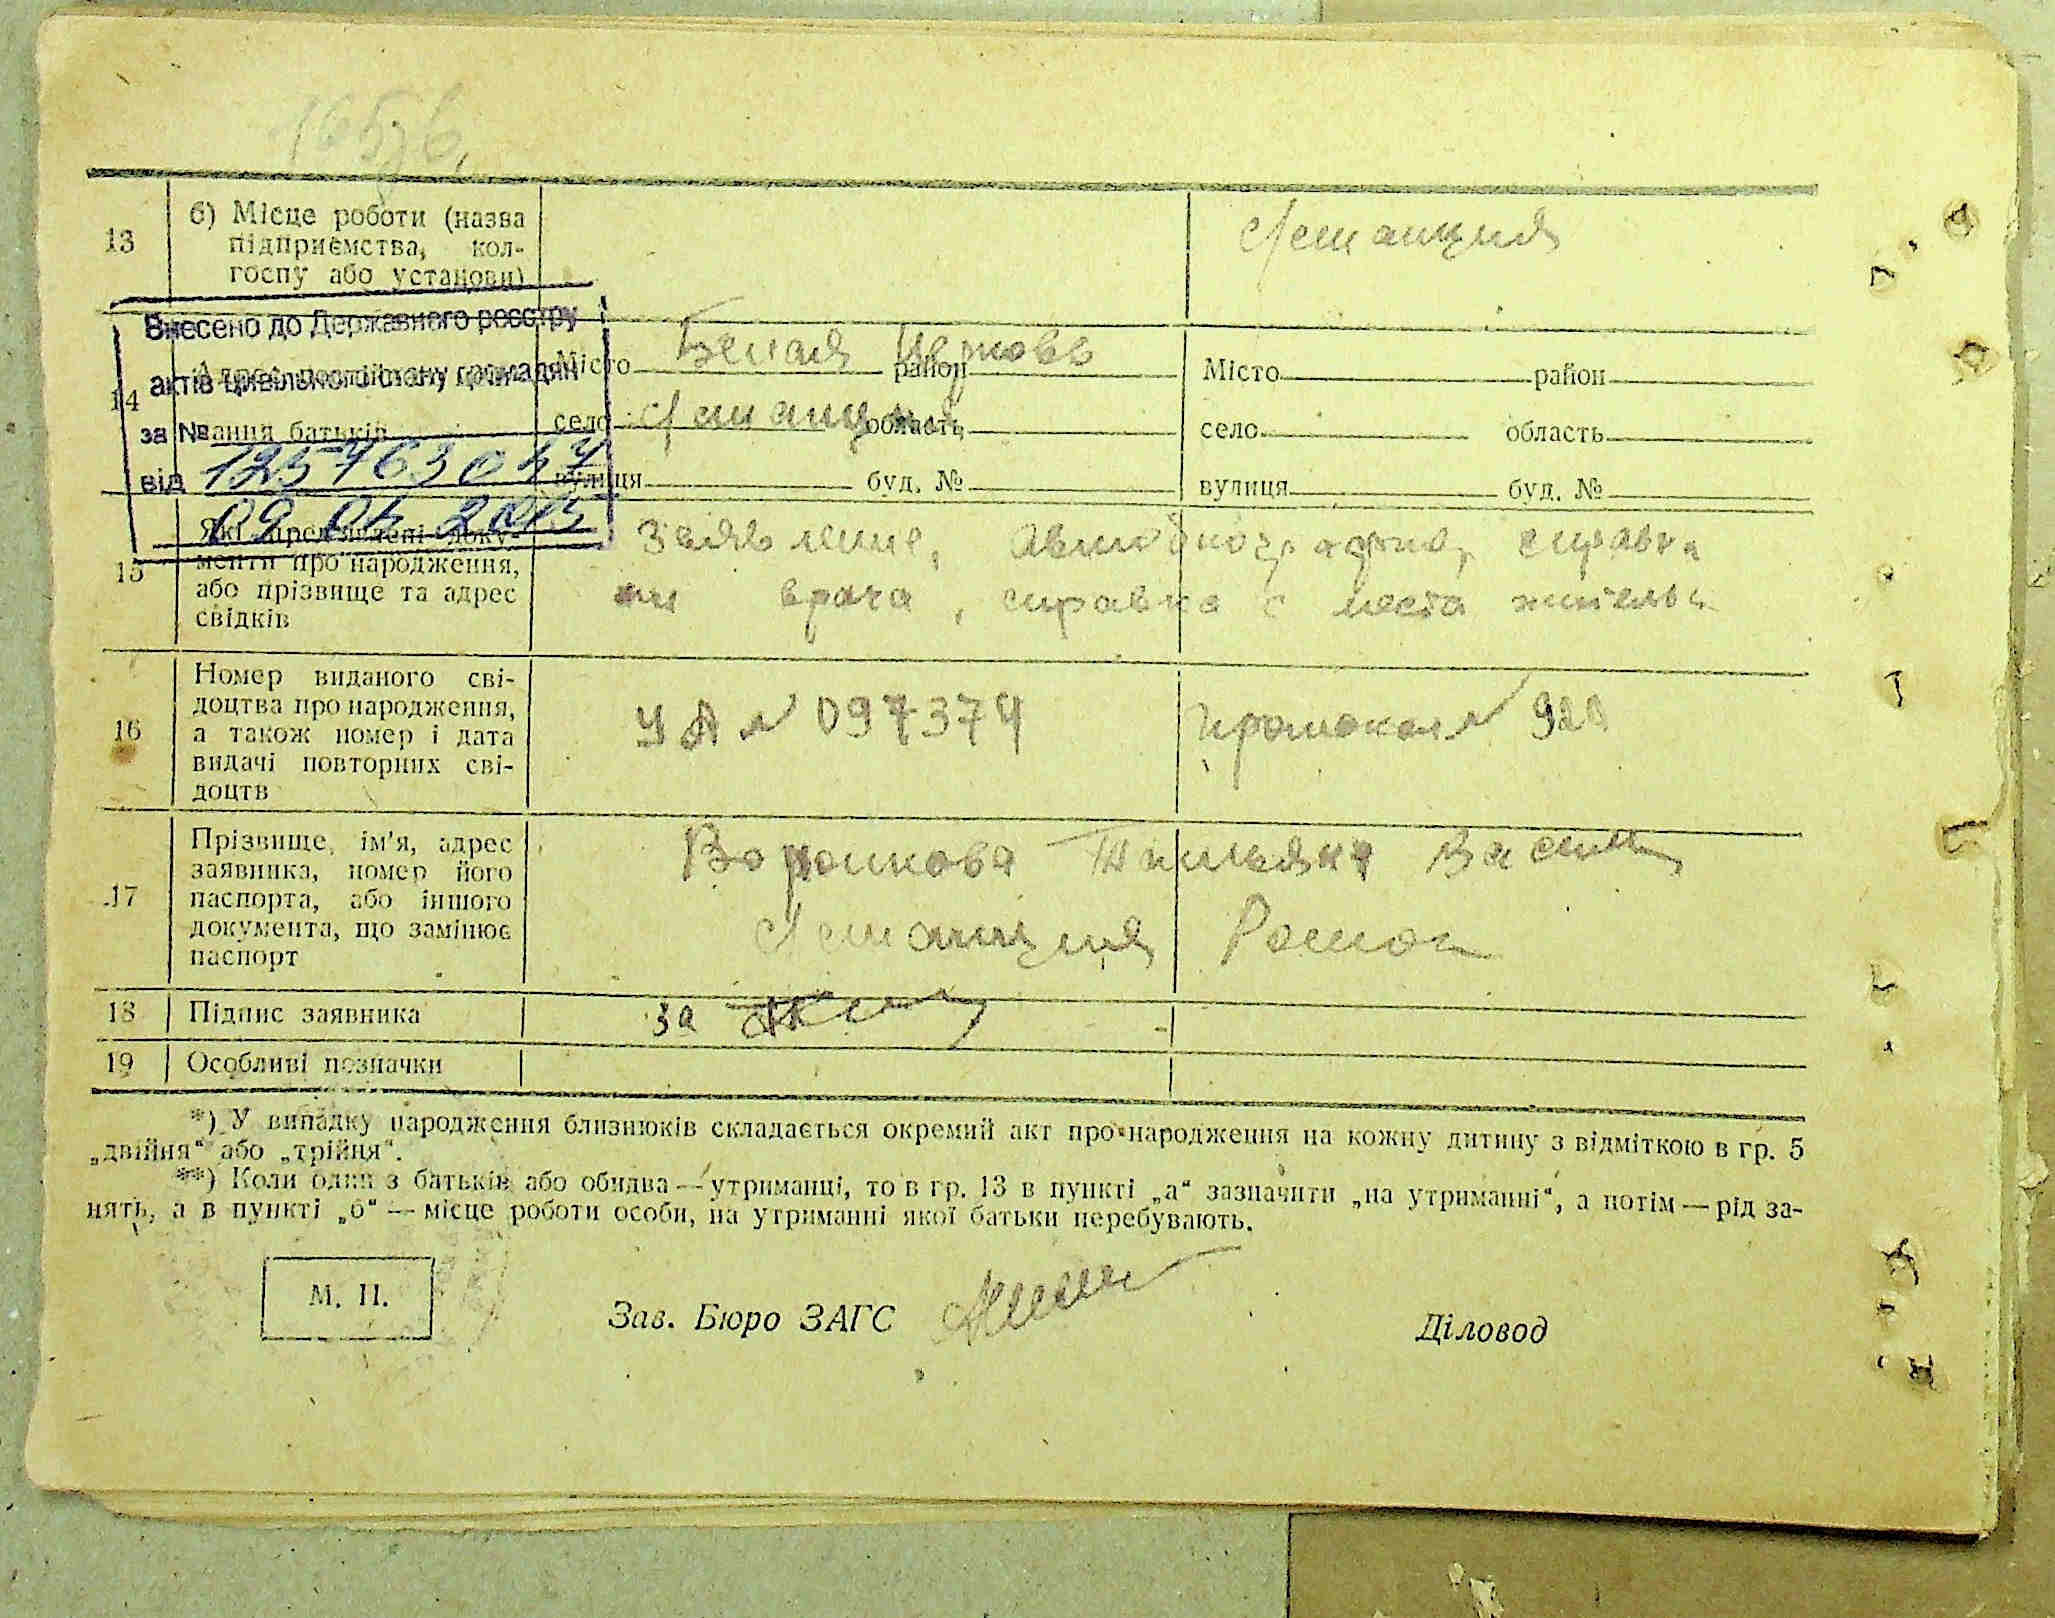 13
б) Місце роботи (назва
підприємства, кол-
госпу або установи)
станция
Внесено до Державного реєстру
актів цивільного стану громадян
за №
125763047
від
14
Адрес постійного прожи-
вання батьків
Місто Белая Церковь район
село станция область
вулиця буд. №
Місто район
село область
вулиця буд. №
15
Які пред'явлені доку-
менти про народження,
або прізвище та адрес
свідків
Заявление, автобиография, справка
врача, справка с места жительс
16
Номер виданого сві-
доцтва про народження,
а також номер і дата
видачі повторних сві-
доцтв
УА № 097374
протокол № 920
17
Прізвище, ім'я, адрес
заявника, номер його
паспорта, або іншого
документа, що замінює
паспорт
Воронкова Татьяна Васил
станция Росток
18
Підпис заявника
за
19
Особливі позначки
*) У випадку народження близнюків складається окремий акт про народження на кожну дитину з відміткою в гр. 5
„двійня“ або „трійня“.
**) Коли один з батьків або обидва — утриманці, то в гр. 13 в пункті „а“ зазначити „на утриманні“, а потім — рід за-
нять, а в пункті „б“ — місце роботи особи, на утриманні якої батьки перебувають.
М. П.
Зав. Бюро ЗАГС
Діловод